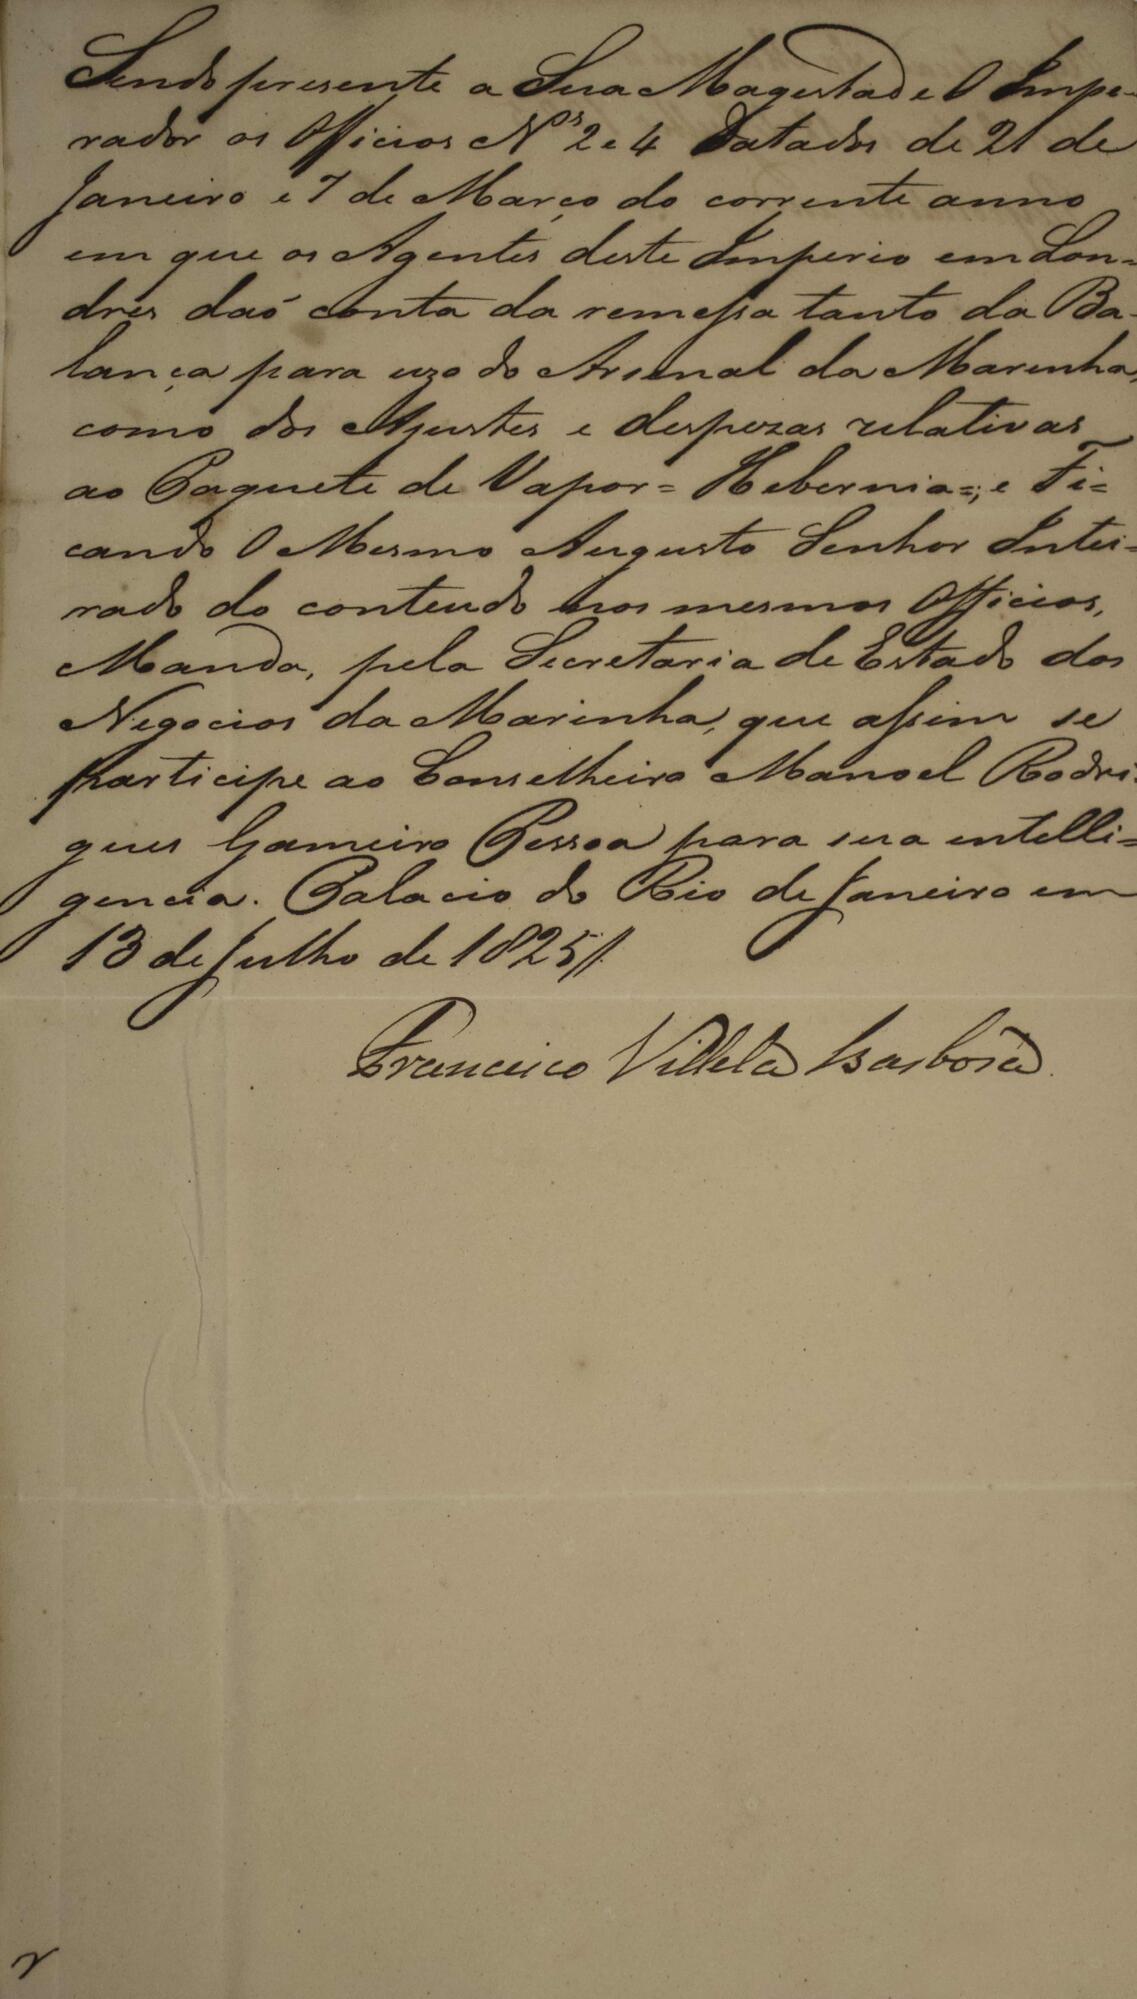 Sendo presente a Sua Magestade O Impe-
rador os Officios Nos 2 e 4 Datados de 21 de
Janeiro e 7 de Março do corrente anno
em que os Agentes deste Imperio em Lon=
dres daõ conta da remessa tanto da Ba-
lança para uzo do Arsenal da Marinha,
como dos Ajustes e despezas relativas
ao Paquete de Vapor = Hebernia =; e Fi=
cando O Mesmo Augusto Senhor Intei=
rado do conteudo nos mesmos Officios,
Manda, pela Secretaria de Estado dos
Negocios da Marinha, que assim se
participe ao Conselheiro Manoel Rodri-
gues Gameiro Pessoa para sua intelli=
gencia. Palacio do Rio de Janeiro em
13 de Julho de 1825//
Francisco Villela Barbosa